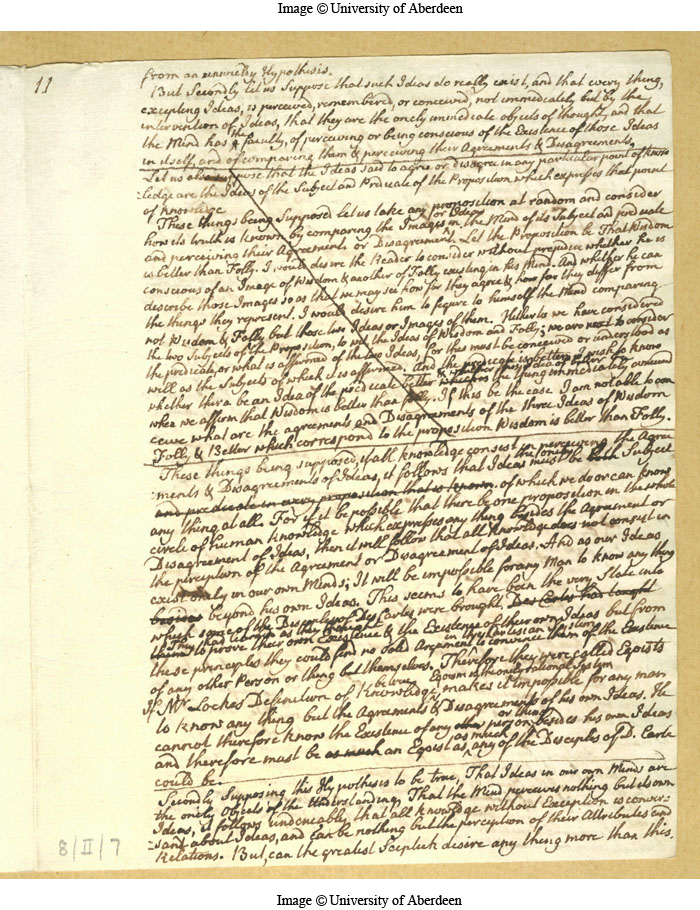 Image © University of Aberdeen
11
from an Hypothesis.
But Secondly let us Suppose that such Ideas do really exist, and that every thing,
excepting Ideas, is perceived, remembered, or conceived, not immediately but by the
intervention of Ideas, that they are the onely immediate objects of thought, and that
the Mind has the faculty, of perceiving or being conscious of the Existence of those Ideas
in itself, and of comparing them & perceiving their Agreements & Disagreements.
Let us also suppose that the Ideas said to agree or disagree in any particular point of know
-ledge are the Ideas of the Subject and Predicate of the Proposition which expresses that point
of knowledge
These things being Supposed let us take any proposition at random and consider
how its truth is known by comparing the Images or Ideas in the Mind of its Subject and predicate
and perceiving their Agreements or Disagreement. Let the Proposition be That Wisdom
is better than Folly. I would desire the Reader to consider without prejudice whether he is
conscious of an Image of Wisdom & another of Folly existing in his Mind. And whether he can
describe those Images so as that we may see how far they agree & how far they differ from
the things they represent. I would desire him to figure to himself the Mind comparing
not Wisdom & Folly but those two Ideas or Images of them. Hitherto we have considered
the two Subjects of the Proposition, to wit the Ideas of Wisdom and Folly; we are next to consider
the predicate, or what is affirmed of the two Ideas, for this must be conceived or understood as
well as the Subjects of which it is affirmed. And
whether there be an Idea of the predicate better
when we affirm that Wisdom is better than folly. If this be the case I am not able to con
ceive what are the agreements and Disagreements of the three Ideas of Wisdom
Folly & Better which correspond to the proposition Wisdom is better than Folly.
These things being supposed, if all knowledge consist in perceiving the Agree
-ments & Disagreements of Ideas, it follows that Ideas must be the only Subject
and predicate in every proposition that is known. of which we do or can know
any thing at all. For if it be possible that there be one proposition in the whole
circle of human knowledge which expresses any thing besides the Agreement or
Disagreement of Ideas, then it will follow that all knowledge does not consist in
the perception of the Agreement or Disagreement of Ideas. And as our Ideas
exist only in our own Minds; It will be impossible for any Man to know any thing
besides beyond his own Ideas. This seems to have been the very State into
which some of the Disciples of Des Cartes were brought.
them to prove their own Existence & the Existence of their own Ideas but from
these principles they could find no solid Argument to convince them of the Existence
of any other Person or thing but themselves. Therefore they were called Egoists
If Mr Lockes Definition of Knowledge makes it impossible for any man
to know any thing but the Agreements & Disagreements of his own Ideas. He
cannot therefore know the Existence of any other person or thing besides his own Ideas
and therefore must be as much an Egoist as any of the Disciples of D. Carte
could be.
Secondly Supposing this Hypothesis to be true, That Ideas in our own Minds are
the onely Objects of the Understanding, That the Mind perceives nothing but its own
Ideas, it follows undeniably that all knowledge without Exception is conver-
-sant about Ideas, and can be nothing but the perception of their Attributes and
Relations. But, can the greatest Sceptick desire any thing more than this.
8/II/7
Image © University of Aberdeen